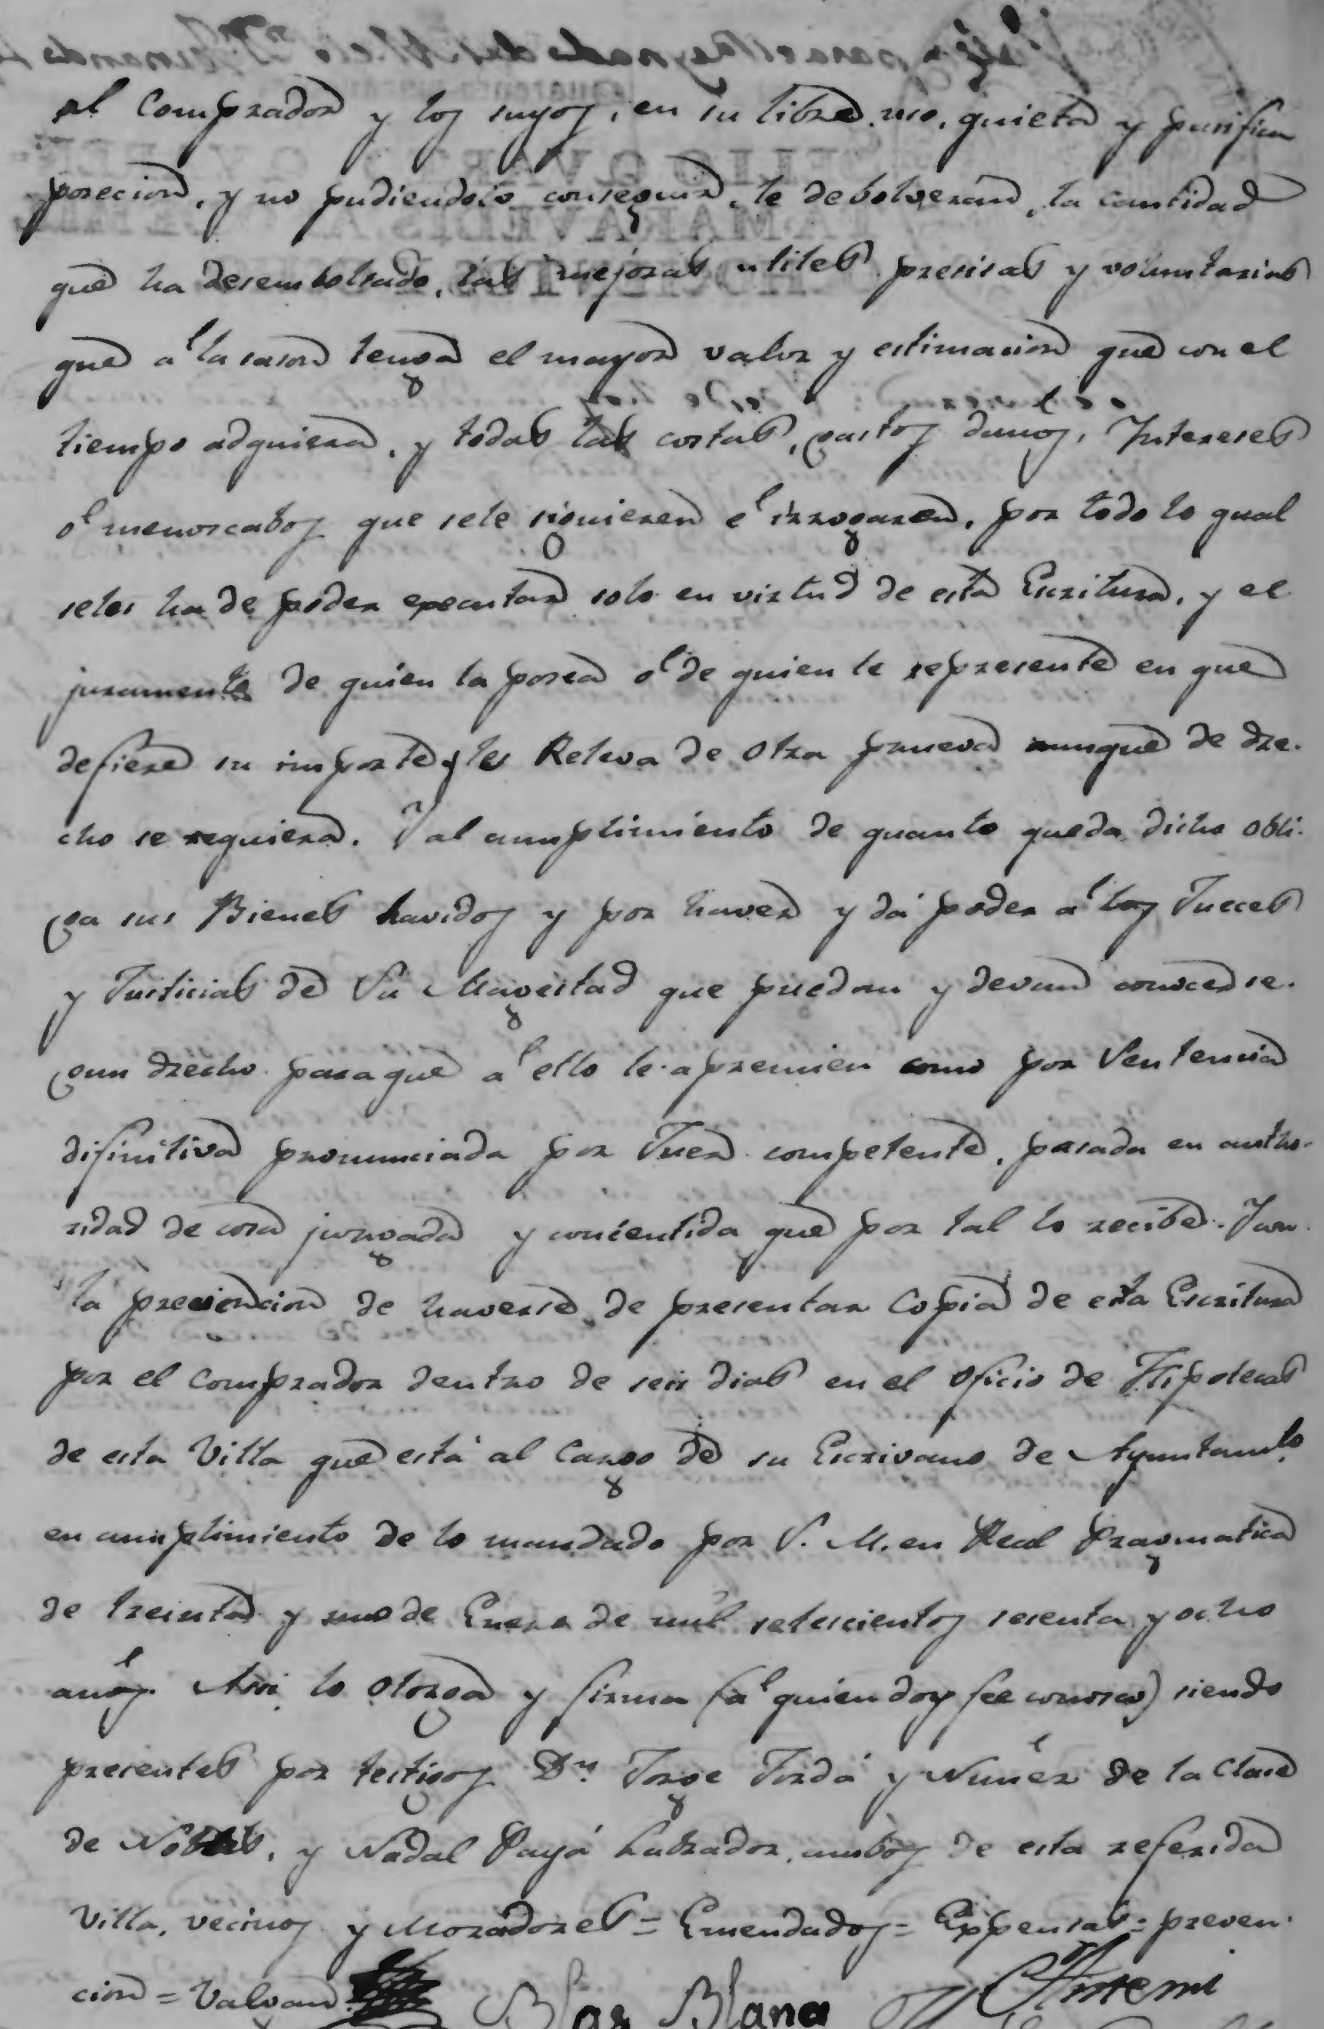 el Comprador y los suyos, en su libre uso, quieta y pasifica
posecion, y no pudiendolo conseguir, le debolveran, la cantidad
que ha desembolsado, las mejoras utiles precisas y voluntarias
que á la sason tenga el mayor valor y estimacion que con el
tiempo adquiera, y todas las costas, gastos daños, Intereses
ó menoscabos que sele siguieren é irrogaren, por todo lo qual
seles ha de poder executar solo en virtud de esta Escritura, y el
juramento de quien la posea ó de quien le represente en que
defiere su importe y les Releva de otra prueva aunque de dre-
cho se requiera. Y al cumplimiento de quanto queda dicho obli-
ga sus Bienes havidos y por haver y dá poder á los Jueces
y Justicias de Su Magestad que puedan y devan conocer se-
gun drecho para que á ello le apremien como por Sentencia
difinitiva pronunciada por Juez competente, pasada en autho-
ridad de cosa jurgada y concentida que por tal lo recibe. Y con
la prevencion de haverse de presentar Copia de esta Escritura
por el Comprador dentro de seis dias en el Oficio de Hipotecas
de esta Villa que está al Cargo de su Escrivano de Ayuntamto.
en cumplimiento de lo mandado por S. M. en Real Pragmatica
de treinta y uno de Enero de mil setescientos sesenta y ocho
años. Assi lo otorga y firma (á quien doy fee conosco) siendo
presentes por testigos Dn. Jorge Jordá y Nuñez de la Clase
de Nobles, y Nadal Payá Labrador, ambos de esta referida
Villa, vecinos y Moradores = Emendados = Expensas = preven-
cion = Valgan
Blas Blana Antemi